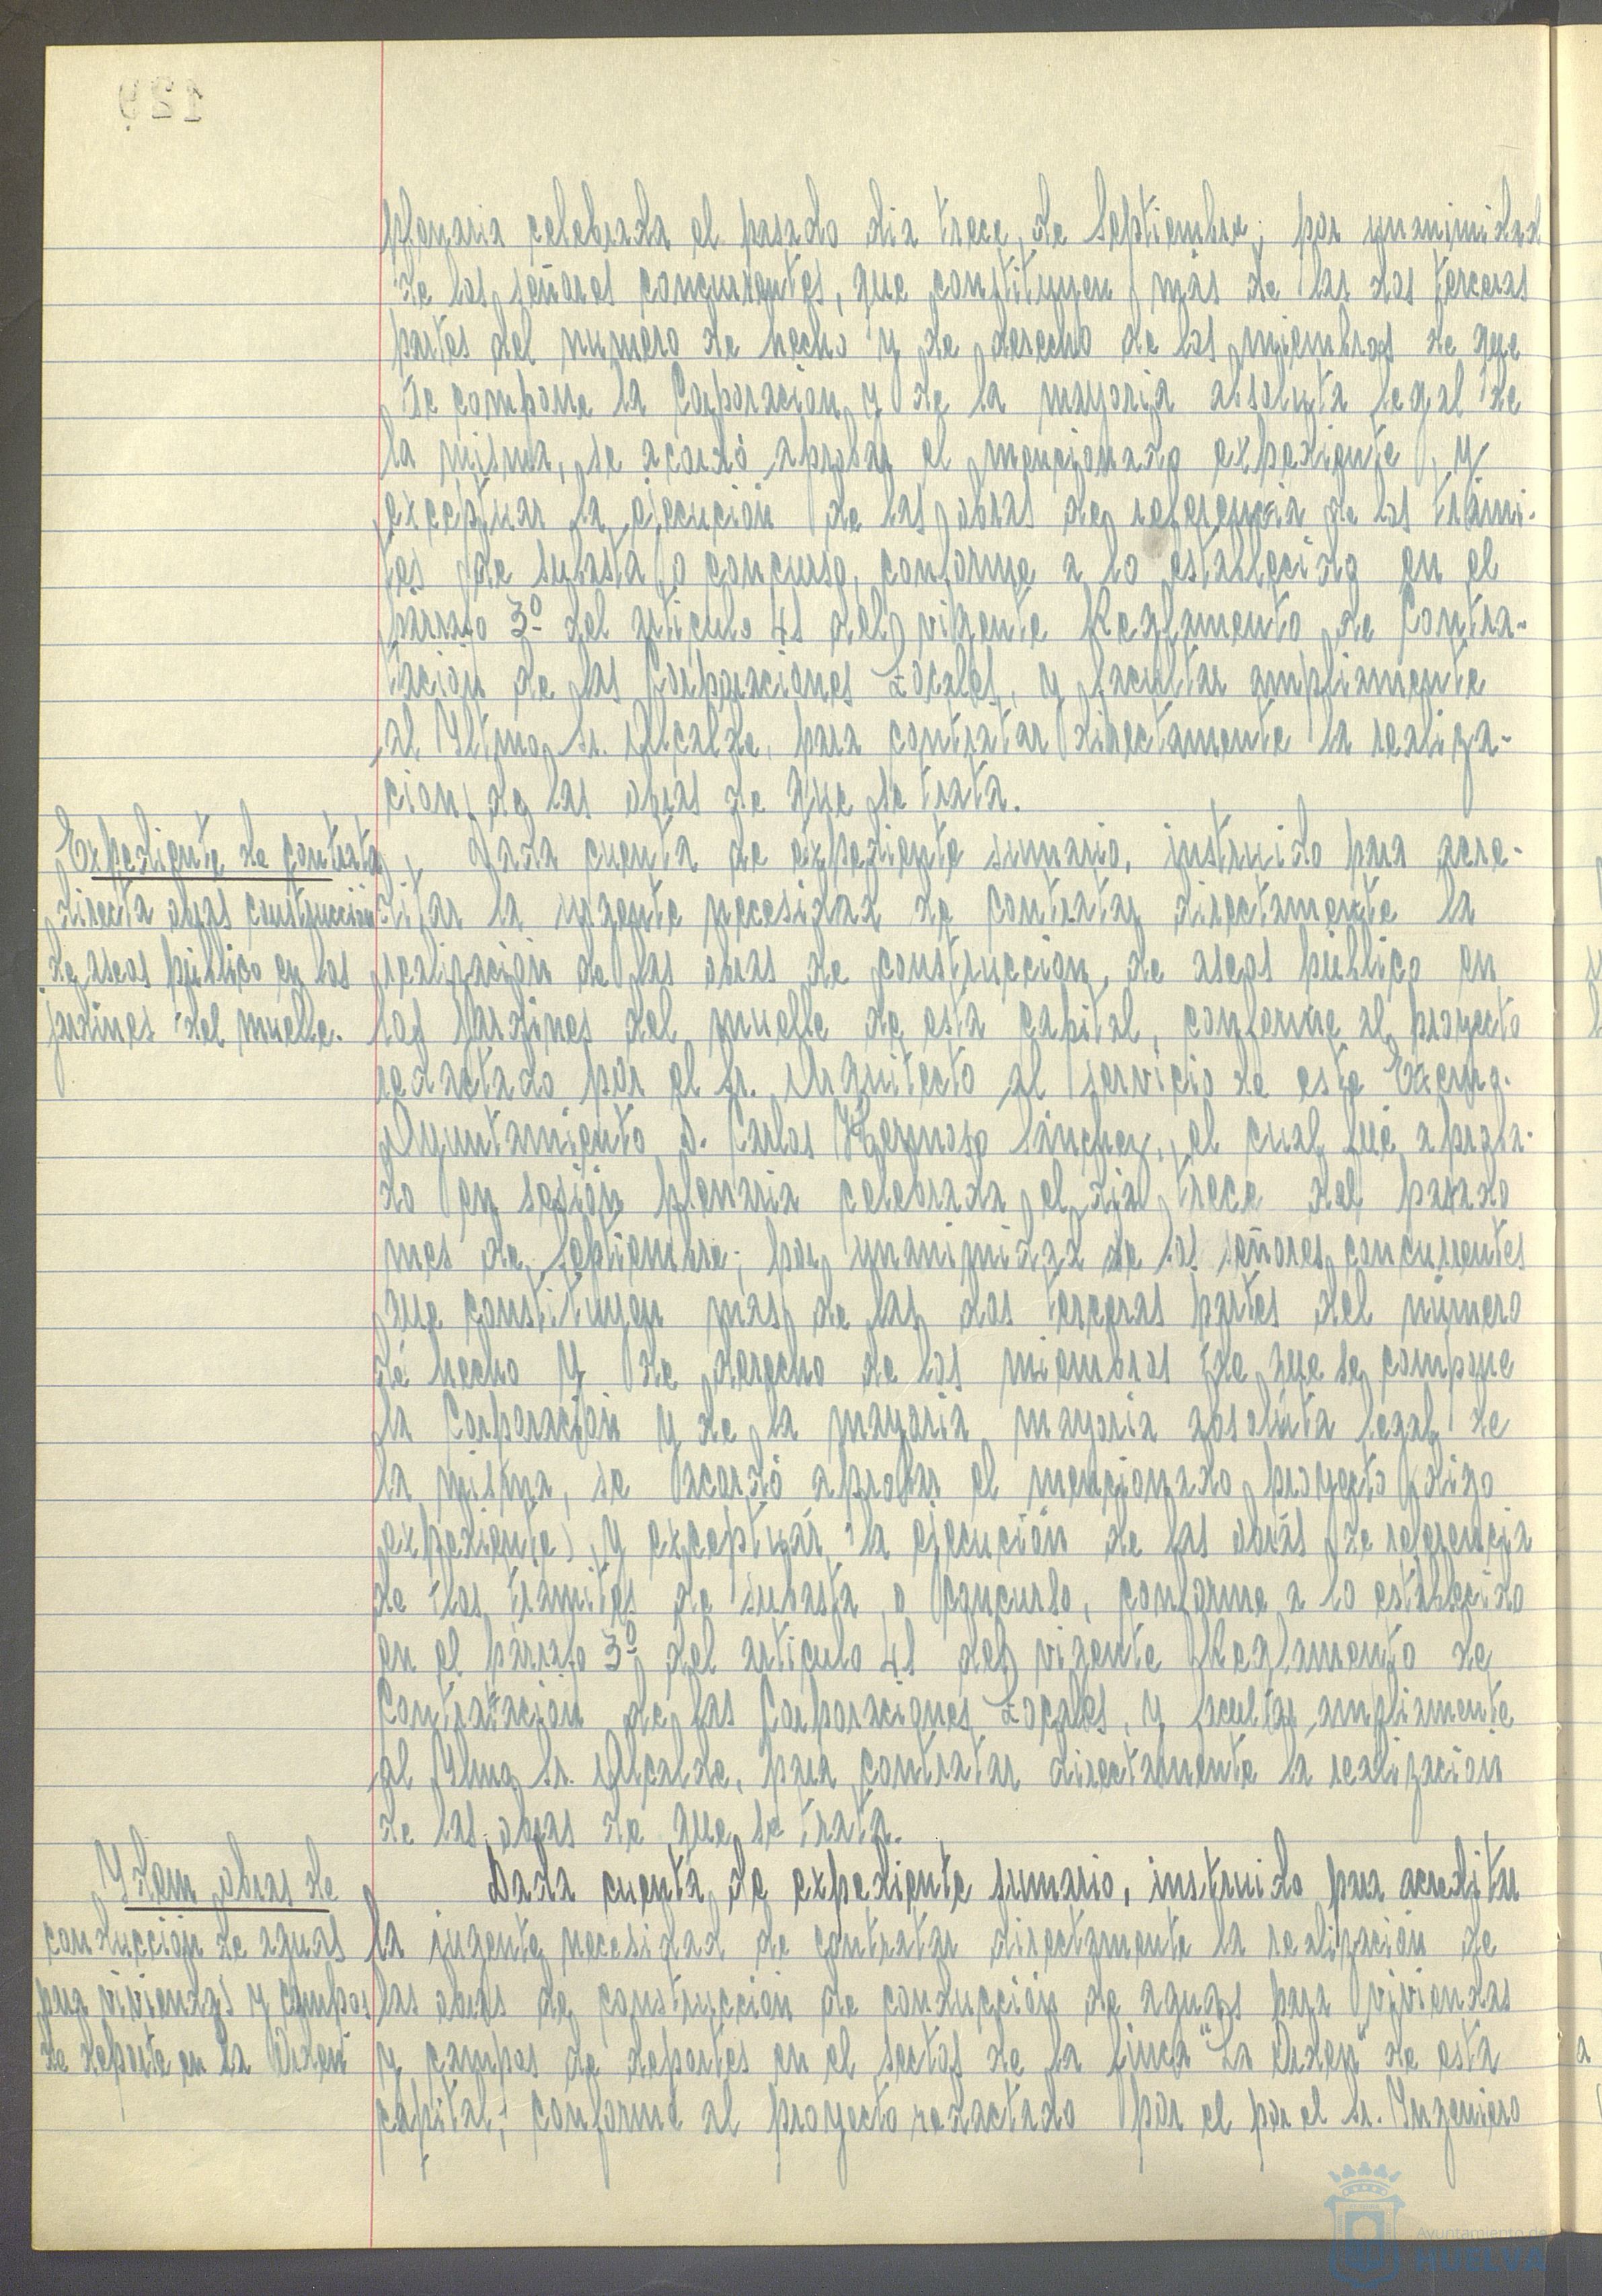 129
plenaria celebrada el pasado dia trece, de Septiembre; por unanimidad
de los señores concurrentes, que constituyen más de las dos terceras
partes del numero de hecho y de derecho de los miembros de que
se compone la Corporación y de la mayoria absoluta legal de
la misma, se acordó aprobar el mencionado expediente, y
exceptuar la ejecución de las obras de referencia de los trámi-
tes de subasta o concurso, conforme a lo establecido en el
párrafo 3º del articulo 41 del vigente Reglamento de Contra-
tación de las Corporaciones Locales, y facultar ampliamente
al Yltmo. Sr. Alcalde, para contratar directamente la realiza-
cion de las obras de que se trata.
Expediente de contrata
directa obras construcción
de aseos público en los
jardines del muelle.
Dada cuenta de expediente sumario, instruido para acre-
ditar la urgente necesidad de contratar directamente la
realización de las obras de construcción, de aseos público en
los Jardines del muelle de esta capital, conforme al proyecto
redactado por el Sr. Arquitecto al servicio de este Excmo.
Ayuntamiento D. Carlos Hermoso Sánchez, el cual fué aproba-
do en sesión plenaria celebrada el dia trece del pasado
mes de Septiembre; por unanimidad de los señores concurrentes
que constituyen mas de las dos terceras partes del número
de hecho y de derecho de los miembros de que se compone
la Corporación y de la mayoria mayoria absoluta legal de
la misma, se acordó aprobar el mencionado proyecto (digo
expediente), y exceptuar la ejecución de las obras de referencia
de los trámites de subasta o concurso, conforme a lo establecido
en el párrafo 3º del articulo 41 del vigente Reglamento de
Contratación de las Corporaciones Locales, y facultar ampliamente
al Ylmo Sr. Alcalde, para contratar directamente la realización
de las obras de que se trata.
Ydem obras de
conducción de aguas
para viviendas y campos
de deporte en la Orden
Dada cuenta de expediente sumario, instruido para acreditar
la urgente necesidad de contratar directamente la realización de
las obras de construcción de conducción de aguas para viviendas
y campos de deportes en el sector de la finca "La Orden" de esta
capital, conforme al proyecto redactado por el por el Sr. Yngeniero
Ayuntamiento de
HUELVA